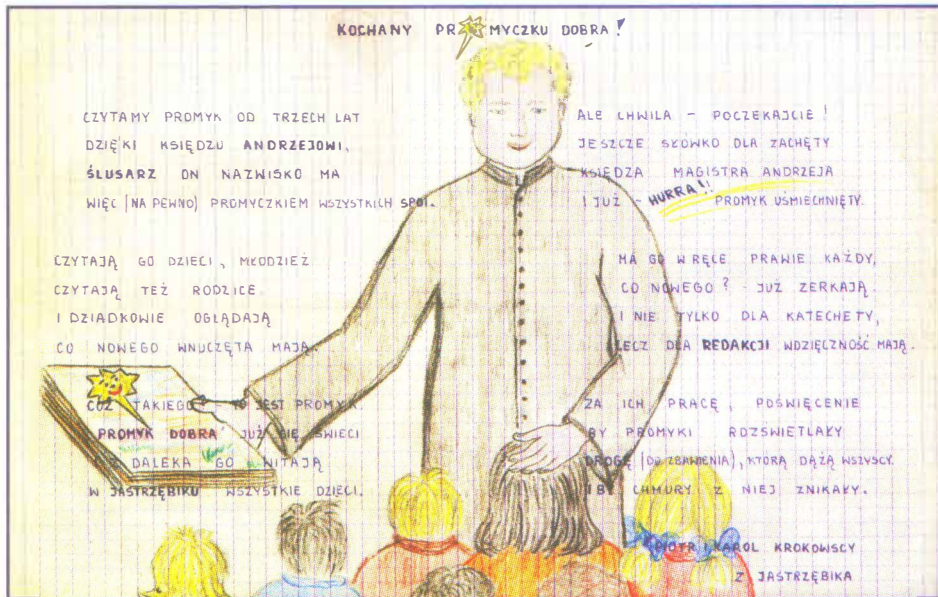 KOCHANY PROMYCZKU DOBRA!
CZYTAMY PROMYK OD TRZECH LAT
DZIĘKI KSIĘDZU ANDRZEJOWI,
ŚLUSARZ ON NAZWISKO MA
WIĘC (NA PEWNO) PROMYCZKIEM WSZYSTKICH SPOI.
CZYTAJĄ GO DZIECI, MŁODZIEŻ
CZYTAJĄ TEŻ RODZICE
I DZIADKOWIE OGLĄDAJĄ
CO NOWEGO WNUCZĘTA MAJĄ.
CÓŻ TAKIEGO TO JEST PROMYK
PROMYK DOBRA JUŻ SIĘ ŚWIECI
Z DALEKA GO WITAJĄ
W JASTRZĘBIKU WSZYSTKIE DZIECI.
ALE CHWILA - POCZEKAJCIE!
JESZCZE SŁÓWKO DLA ZACHĘTY
KSIĘDZA MAGISTRA ANDRZEJA
I JUŻ - HURRA!! PROMYK UŚMIECHNIĘTY.
MA GO W RĘCE PRAWIE KAŻDY,
CO NOWEGO? - JUŻ ZERKAJĄ.
I NIE TYLKO DLA KATECHETY,
LECZ DLA REDAKCJI WDZIĘCZNOŚĆ MAJĄ.
ZA ICH PRACĘ, POŚWIĘCENIE
BY PROMYKI ROZŚWIETLAŁY
DROGĘ (DO ZBAWIENIA), KTÓRĄ DĄŻĄ WSZYSCY.
I BY CHMURY Z NIEJ ZNIKAŁY.
PIOTR I KAROL KROKOWSCY
Z JASTRZĘBIKA